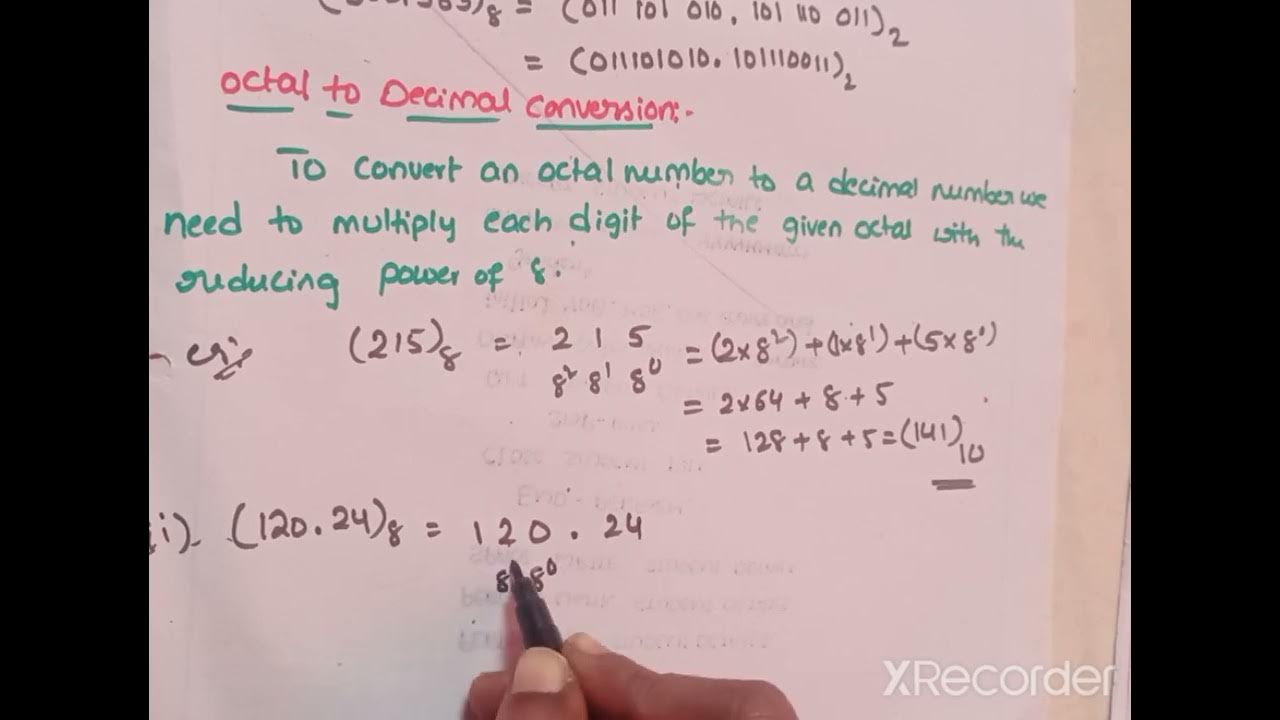 )₈ = (011 101 010. 101 110 011)₂
= (011101010.101110011)₂
Octal to Decimal Conversion:-
To convert an octal number to a decimal number we
need to multiply each digit of the given octal with the
reducing power of 8.
(215)₈ = 2 1 5 = (2x8²)+(1x8¹)+(5x8⁰)
8² 8¹ 8⁰
= 2x64 + 8 + 5
= 128 + 8 + 5 = (141)₁₀
i). (120.24)₈ = 120 . 24
8 8⁰
XRecorder